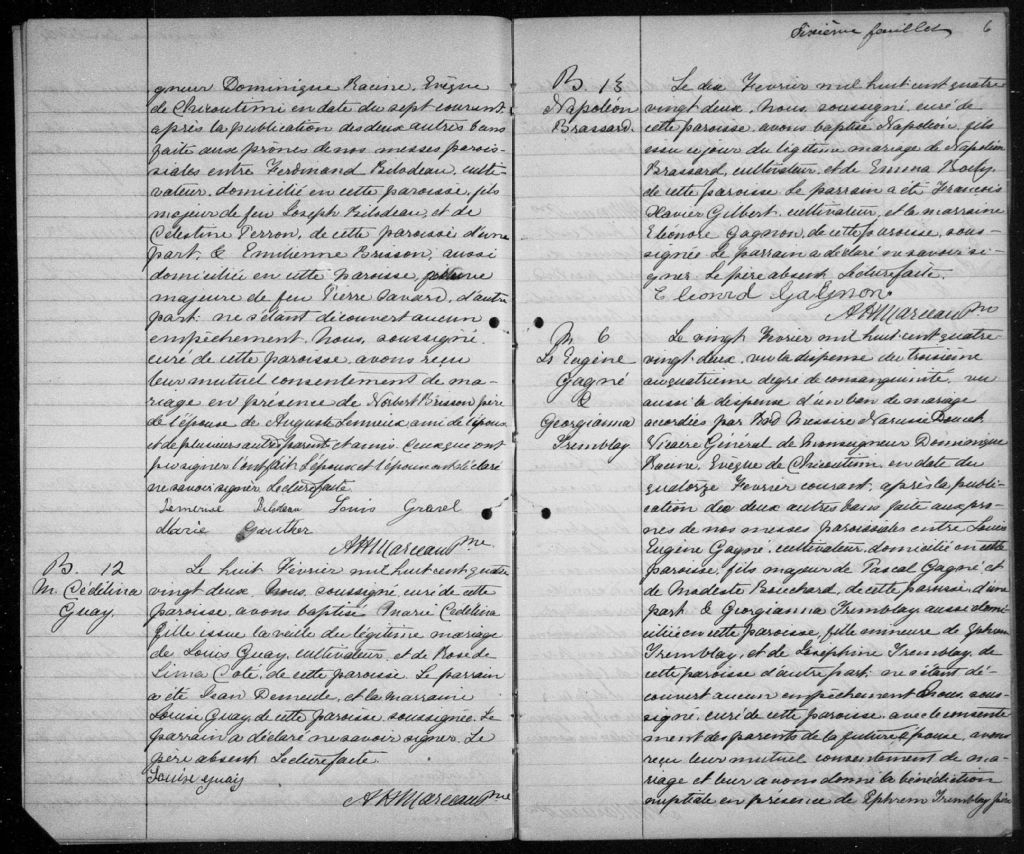 gneur Dominique Racine, Evèque
de Chicoutimi en date du sept courant,
après la publication des deux autres bans
faite aux prônes de nos messes parois-
siales entre Ferdinand Bilodeau, culti-
vateur, domicilié en cette paroisse, fils
majeur de feu Joseph Bilodeau, et de
Célestine Perron, de cette paroisse d'une
part; & Emilienne Brisson, aussi
domiciliée en cette paroisse,
majeure de feu Pierre Savard, d'autre
part; ne s'étant découvert aucun
empêchement. Nous, soussigné,
curé de cette paroisse, avons reçu
leur mutuel consentement de ma-
riage en présence de Norbert Brisson père
de l'épouse de Auguste Lemieux ami de l'époux
et de plusieurs autres parents et amis. Ceux qui ont
pu signer l'ont fait. L'époux et l'épouse ont déclaré
ne savoir signer. Lecture faite.
Demerise Bilodeau Louis Gravel
Marie Gauthier
A H Marceau Ptre
B. 12
M. Cédélina
Guay
Le huit Février mil huit cent quatre
vingt deux, Nous, soussigné, curé de cette
paroisse, avons baptisé Marie Cédélina
fille issue la veille du légitime mariage
de Louis Guay, cultivateur, et de Rose de
Lima Coté, de cette paroisse. Le parrain
a été Jean Demeule, et la marraine
Louise Guay, de cette paroisse, soussignée. Le
parrain a déclaré ne savoir signer. Le
père absent. Lecture faite.
Louise Guay
A H Marceau Ptre
Sixième feuillet 6
B. 13
Napoléon
Brassard
Le dix Février mil huit cent quatre
vingt deux, Nous, soussigné, curé de
cette paroisse, avons baptisé Napoléon, fils
issu ce jour du légitime mariage de Napoléon
Brassard, cultivateur, et de Emma Boily,
de cette paroisse. Le parrain a été François
Xavier Gilbert, cultivateur, et la marraine
Eléonore Gagnon, de cette paroisse, sous-
signée. Le parrain a déclaré ne savoir si-
gner. Le père absent. Lecture faite.
Eleonord Gagnon
A H Marceau Ptre
M. 6
Ls Eugène
Gagné
&
Georgianna
Tremblay
Le vingt Février mil huit cent quatre
vingt deux, vu la dispense du troisième
au quatrième degré de consanguinité, vu
aussi la dispense d'un ban de mariage
accordées par Messire Narcisse Doucet
Vicaire Général de Monseigneur Dominique
Racine, Evèque de Chicoutimi, en date du
quatorze Février courant, après la publi-
cation des deux autres bans faite aux prô-
nes de nos messes paroissiales entre Louis
Eugène Gagné, cultivateur, domicilié en cette
paroisse, fils majeur de Pascal Gagné et
de Modeste Bouchard, de cette paroisse, d'une
part & Georgianna Tremblay, aussi domi-
ciliée en cette paroisse, fille mineure de Ephrem
Tremblay, et de Joséphine Tremblay, de
cette paroisse d'autre part; ne s'étant dé-
couvert aucun empêchement Nous, sous-
signé, curé de cette paroisse, avec le consente-
ment des parents de la future épouse, avons
reçu leur mutuel consentement de ma-
riage et leur avons donné la bénédiction
nuptiale en présence de Ephrem Tremblay père